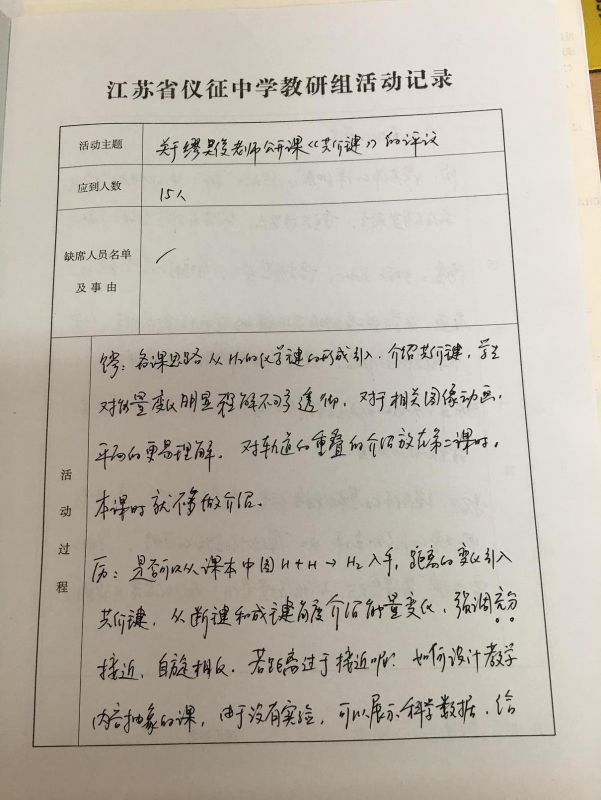 江苏省仪征中学教研组活动记录
活动主题
关于缪昊俊老师公开课《共价键》的评议
应到人数
15人
缺席人员名单
及事由
活动过程
备课思路从H₂的化学键的形成引入，介绍共价键，学生
对能量变化明显理解不够透彻，对于相关图像动画，
平面的更易理解。对轨道的重叠的介绍放在第二课时，
本课时就不够做介绍。
历：是否可以从课本中图H+H→H₂入手，距离的变化引入
共价键，从断键和成键角度介绍能量变化，强调充分
接近，自旋相反。若距离过于接近呢？如何设计教学
内容抽象的课，由于没有实验，可以展示科学数据，给